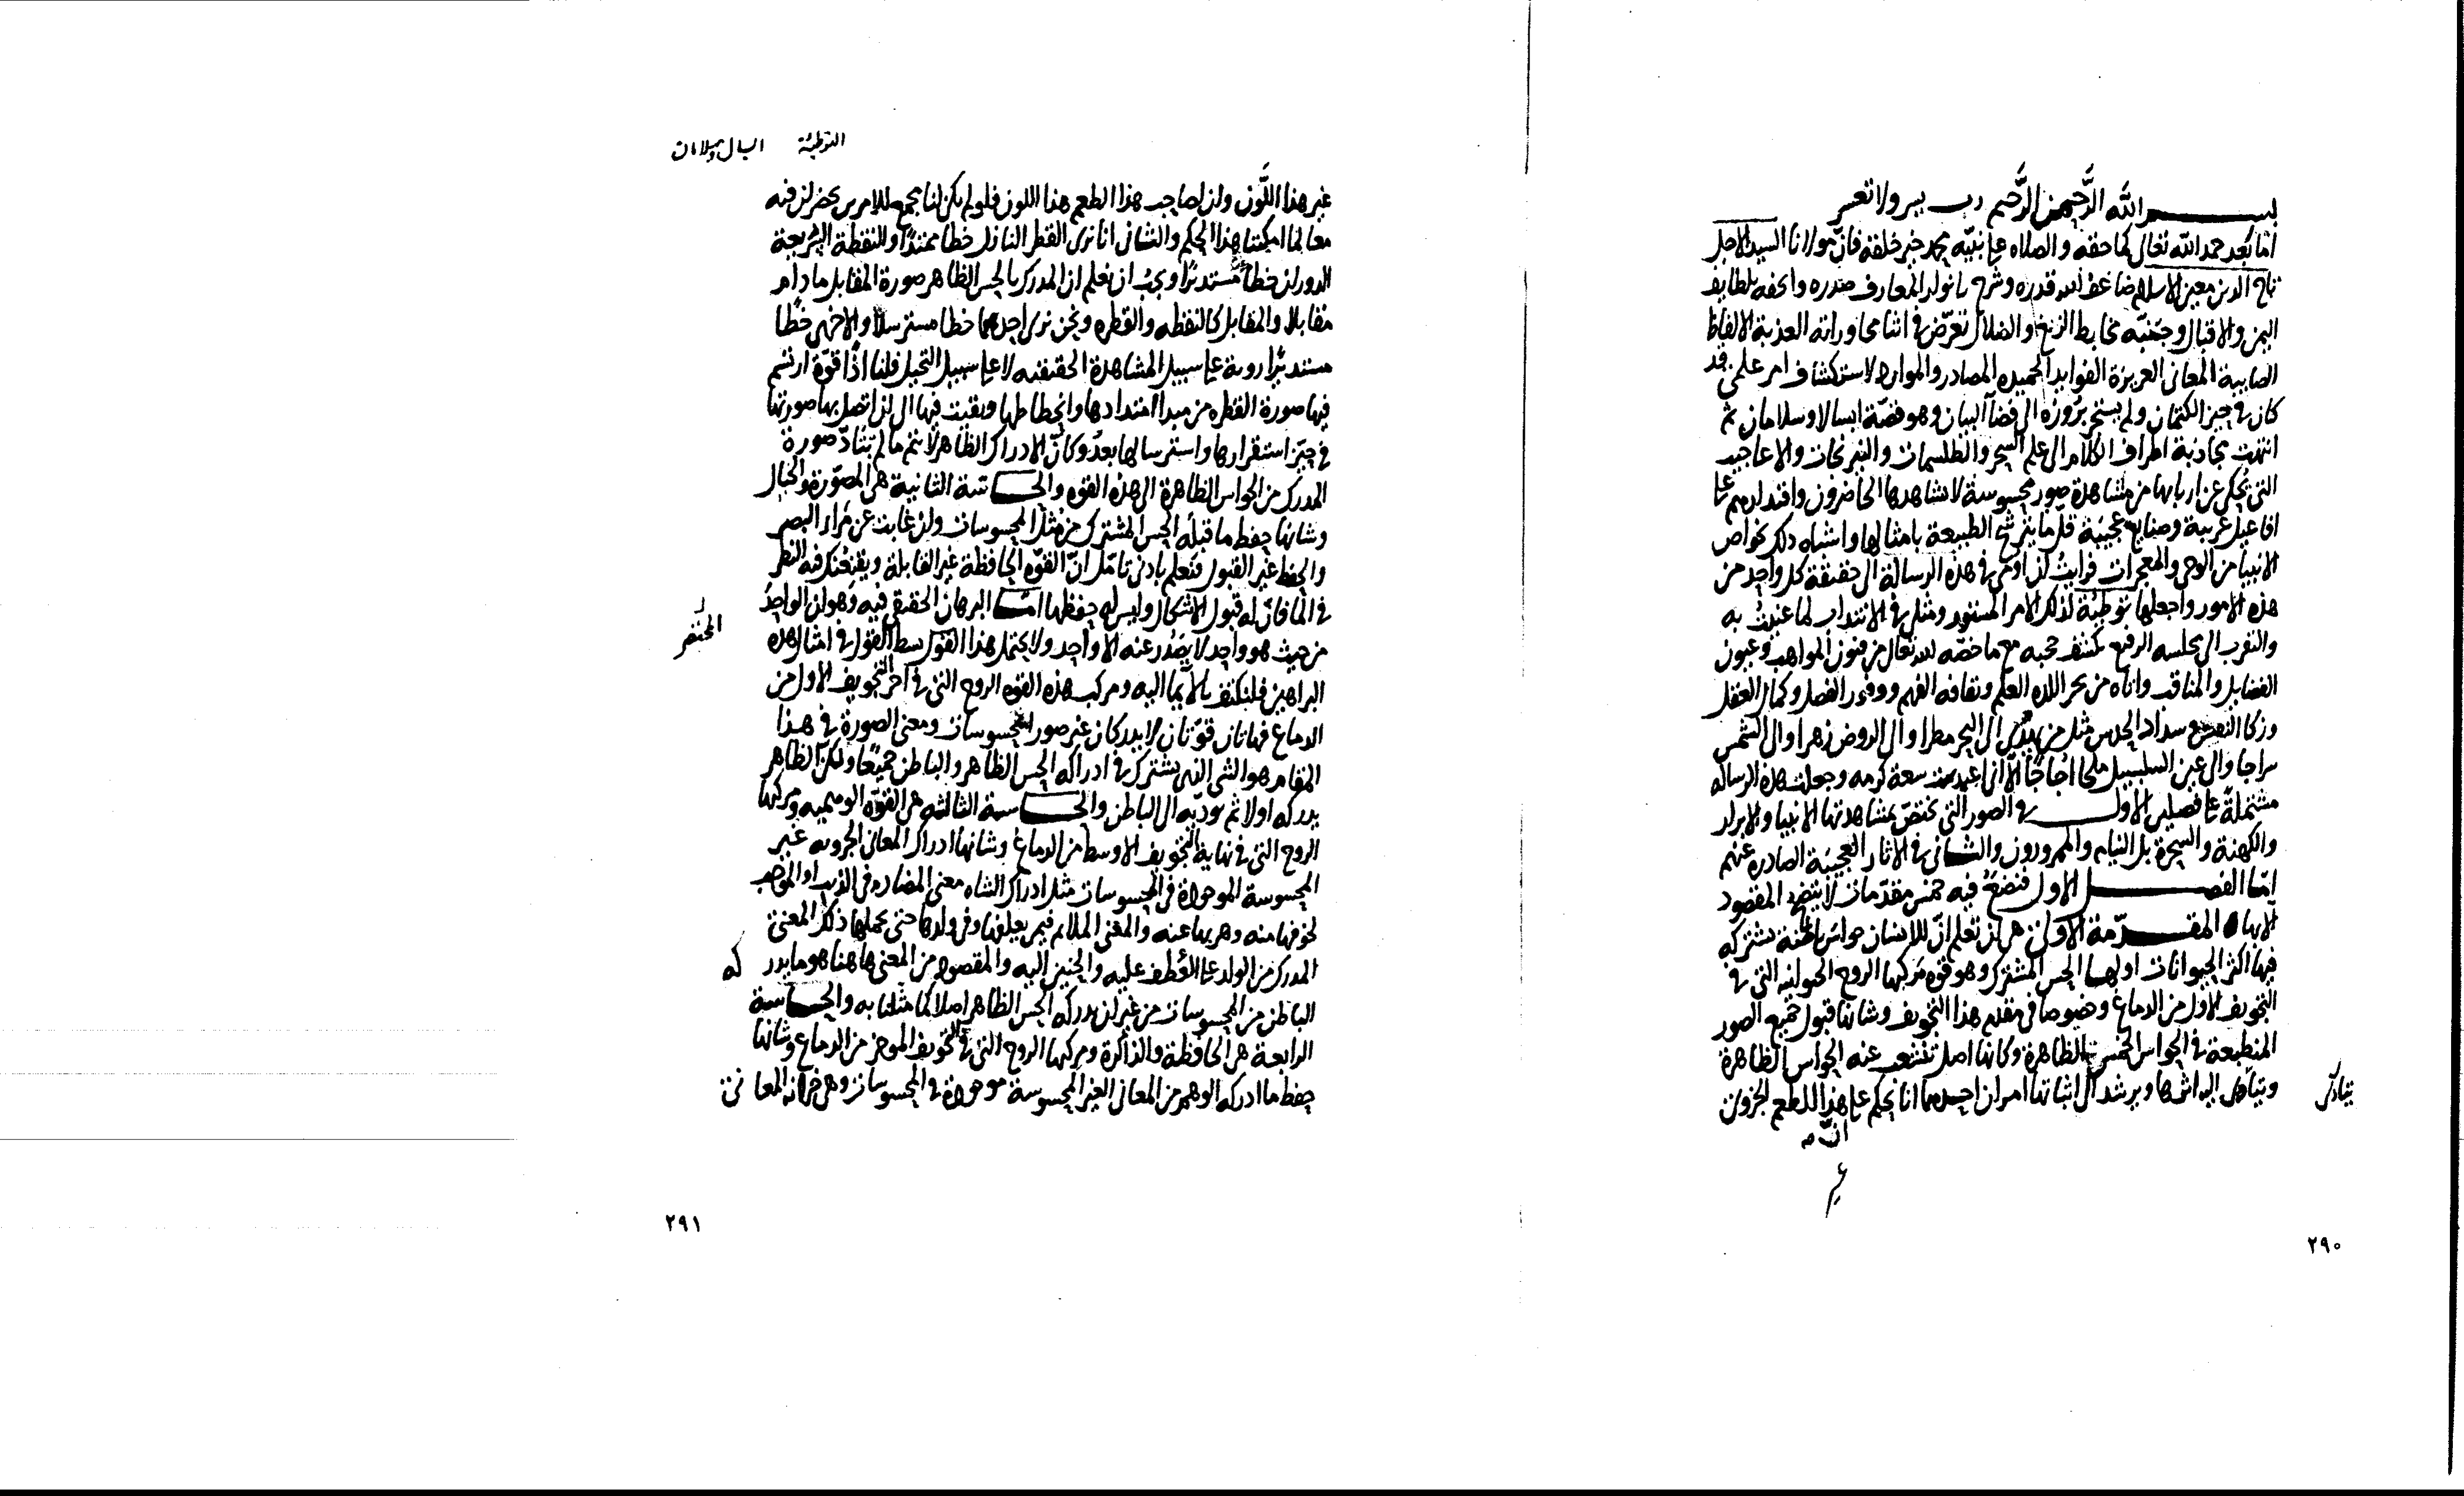 بسم الله الرَّحمن الرَّحيم رب يسر ولا تعسر
اما بعد حمد الله تعالى كما حقه والصلاه على نبيّه محمد خير خلقه فانّ مولانا السيد الاجل
تاج الدين معين الاسلام ضاعف الله قدره وشرح بانوار المعارف صدره واتحفه بلطايف
اليمن والاقبال وجنبّه مخابط الزيغ والضلال تعرّض في اثنا محاوراته العذبة الالفاظ
الصايبة المعاني الغزيزة الفوايد الحميده المصادر والموارد لاستكشاف امر علمي قد
كان في حيز الكتمان ولم يستخر بروزه الى فضآ البيان وهو قصّة ابسالا وسلامان ثم
انتهت مجاذبة اطراف الكلام الى علم السحر والطلسمات والنيرنجات والاعاجيب
التي تحكى عن اربابها من مشاهدة صور محسوسة لا يشاهدها الحاضرون واقتدارهم على
افاعيل غريبة وصنايع عجيبة قلّما يترشح الطبيعة بامثالها واشباه ذلك كخواص
الانبيا من الوحى والمعجزات فرايتُ ان اومى في هذه الرسالة الى حقيقة كل واحد من
هذه الامور واجعلها توطئة لذلك الامر المستور ومثلي في الابتدار لما عنيتُ به
والتقرب الى مجلسه الرفيع مع ما خصّه الله تعالى من فنون المواهب وعيون
الفضايل والمناقب واتاه من بحر اللده العلم وثقافه الفهم ووفور الفضل وكمال العقل
وزكا النفس مع سداد الحدس مثل من يهدى الى البحر مطرا والى الروض زهرا والى الشمس
سراجا والى عين السلسبيل ملحا اجاجًا الّا انى اعتمدت سعة كرمه وجعلت هذه الرساله
مشتملةً على فصلين الاول في الصور التي تختصّ بمشاهدتها الانبيا والابرار
والكهنة والسحرة بل النيام والممرورون والثانى في الاثار العجيبة الصادره عنهم
امّا الفصل الاول فنضع فيه خمس مقدّمات لا يتضح المقصود
الا بها المقدّمة الاولى هي ان تعلم انّ للانسان حواسّ باطنة يشركه
فيها اكثر الحيوانات اولها الحس المشترك وهو قوه مركبها الروح الحيوانيه التي في
التجويف الاول من الدماغ وخصوصا في مقدم هذا التجويف وشانها قبول جميع الصور
المنطبعة في الحواس الخمس الظاهرة وكانها اصل تتشعب عنه الحواس الظاهرة
ويتادى اليه اثرها ويرشد الى اثباتها امران احدهما انا نحكم على هذا الطعم الجزوى
انّه
يتادى
٢٩٠
التوطئة ابسال وسلامان
غير هذا اللَّون وان لصاحب هذا الطعم هذا اللون فلو لم يكن لنا مجمع للامرين يحضران فيه
معا لما امكننا هذا الحكم والثانى انا نرى القطر النازل خطا ممتدًّا والنقطة السريعة
الدوران خطًّا مستديرًا ويجب ان نعلم ان المدرك بالحس الظاهر صورة المقابل ما دام
مقابلا والمقابل كالنقطه والقطره ونحن نرى احدهما خطا مسترسلا والاخرى خطًّا
مستديرًا روية على سبيل المشاهدة الحقيقيه لا على سبيل التخيل فلنا اذًا قوّة ارتسم
فيها صورة القطره من مبدا امتدادها وانحطاطها وبقيت فيها الى ان اتصل بها صورتها
في حيّز استقرارها واسترسالها بعدُ وكانّ الادراك الظاهر لا يتم ما لم يتادّ صورة
المدرك من الحواس الظاهرة الى هذه القوه والحاسة الثانية هي المصوّرة والخيال
وشانها حفظ ما قبله الحس المشترك من مُثل المحسوسات وان غابت عن مزار البصر
والحفظ غير القبول فتعلم بادنى تامّل انّ القوّه الحافظة غير القابلة ويقنعك فيه النظر
في الما فانّ له قبول الاشكال وليس له حفظها امّا البرهان الحقيقى فيه وهو ان الواحدُ
من حيث هو واحد لا يصدر عنه الا واحد ولا يحتمل هذا القول بسط القول في امثال هذه
المختصر
البراهين فلنكتف بالايما اليه ومركب هذه القوه الروح التي في اخر التجويف الاول من
الدماغ فهاتان قوّتان لا يدركان غير صور المحسوسات ومعنى الصورة في هذا
المقام هو الشى الذى يشترك في ادراكه الحس الظاهر والباطن جميعًا ولكن الظاهر
يدركه اولا ثم يودّيه الى الباطن والحاسة الثالثه هي القوّه الوهميه ومركبها
الروح التى في نهاية التجويف الاوسط من الدماغ وشانها ادراك المعانى الجزويه غير
المحسوسة الموجودة في المحسوسات مثل ادراك الشاه معنى المضاره في الذيب او الموجب
لخوفها منه وهربها عنه والمعنى الملائم فيمن يعلفها وفي ولدها حتى يحملها ذلك المعنى
المدرك من الولد على العطف عليه والحنين اليه والمقصود من المعنى هاهنا هو ما يدركه
الباطن من المحسوسات من غير ان يدركه الحس الظاهر اصلا كما مثلنا به والحاسة
الرابعة هي الحافظة والذاكرة ومركبها الروح التى في التجويف الموخر من الدماغ وشانها
حفظ ما ادركه الوهم من المعانى الغير المحسوسة موجودة في المحسوسات وهى خزانه المعانى
٢٩١